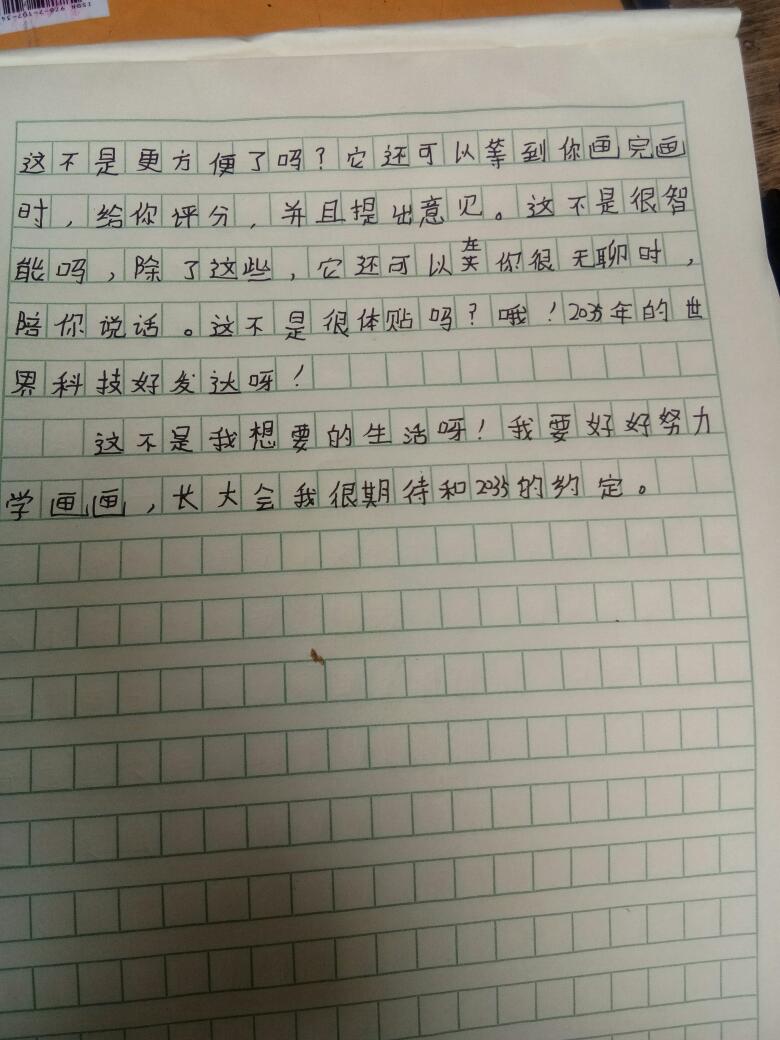 ISBN 978-7-107-34
这不是更方便了吗？它还可以等到你画完画
时，给你评分，并且提出意见。这不是很智
能吗，除了这些，它还可以在你很无聊时，
陪你说话。这不是很体贴吗？哦！2035年的世
界科技好发达呀！
这不是我想要的生活呀！我要好好努力
学画画，长大会我很期待和2035的约定。